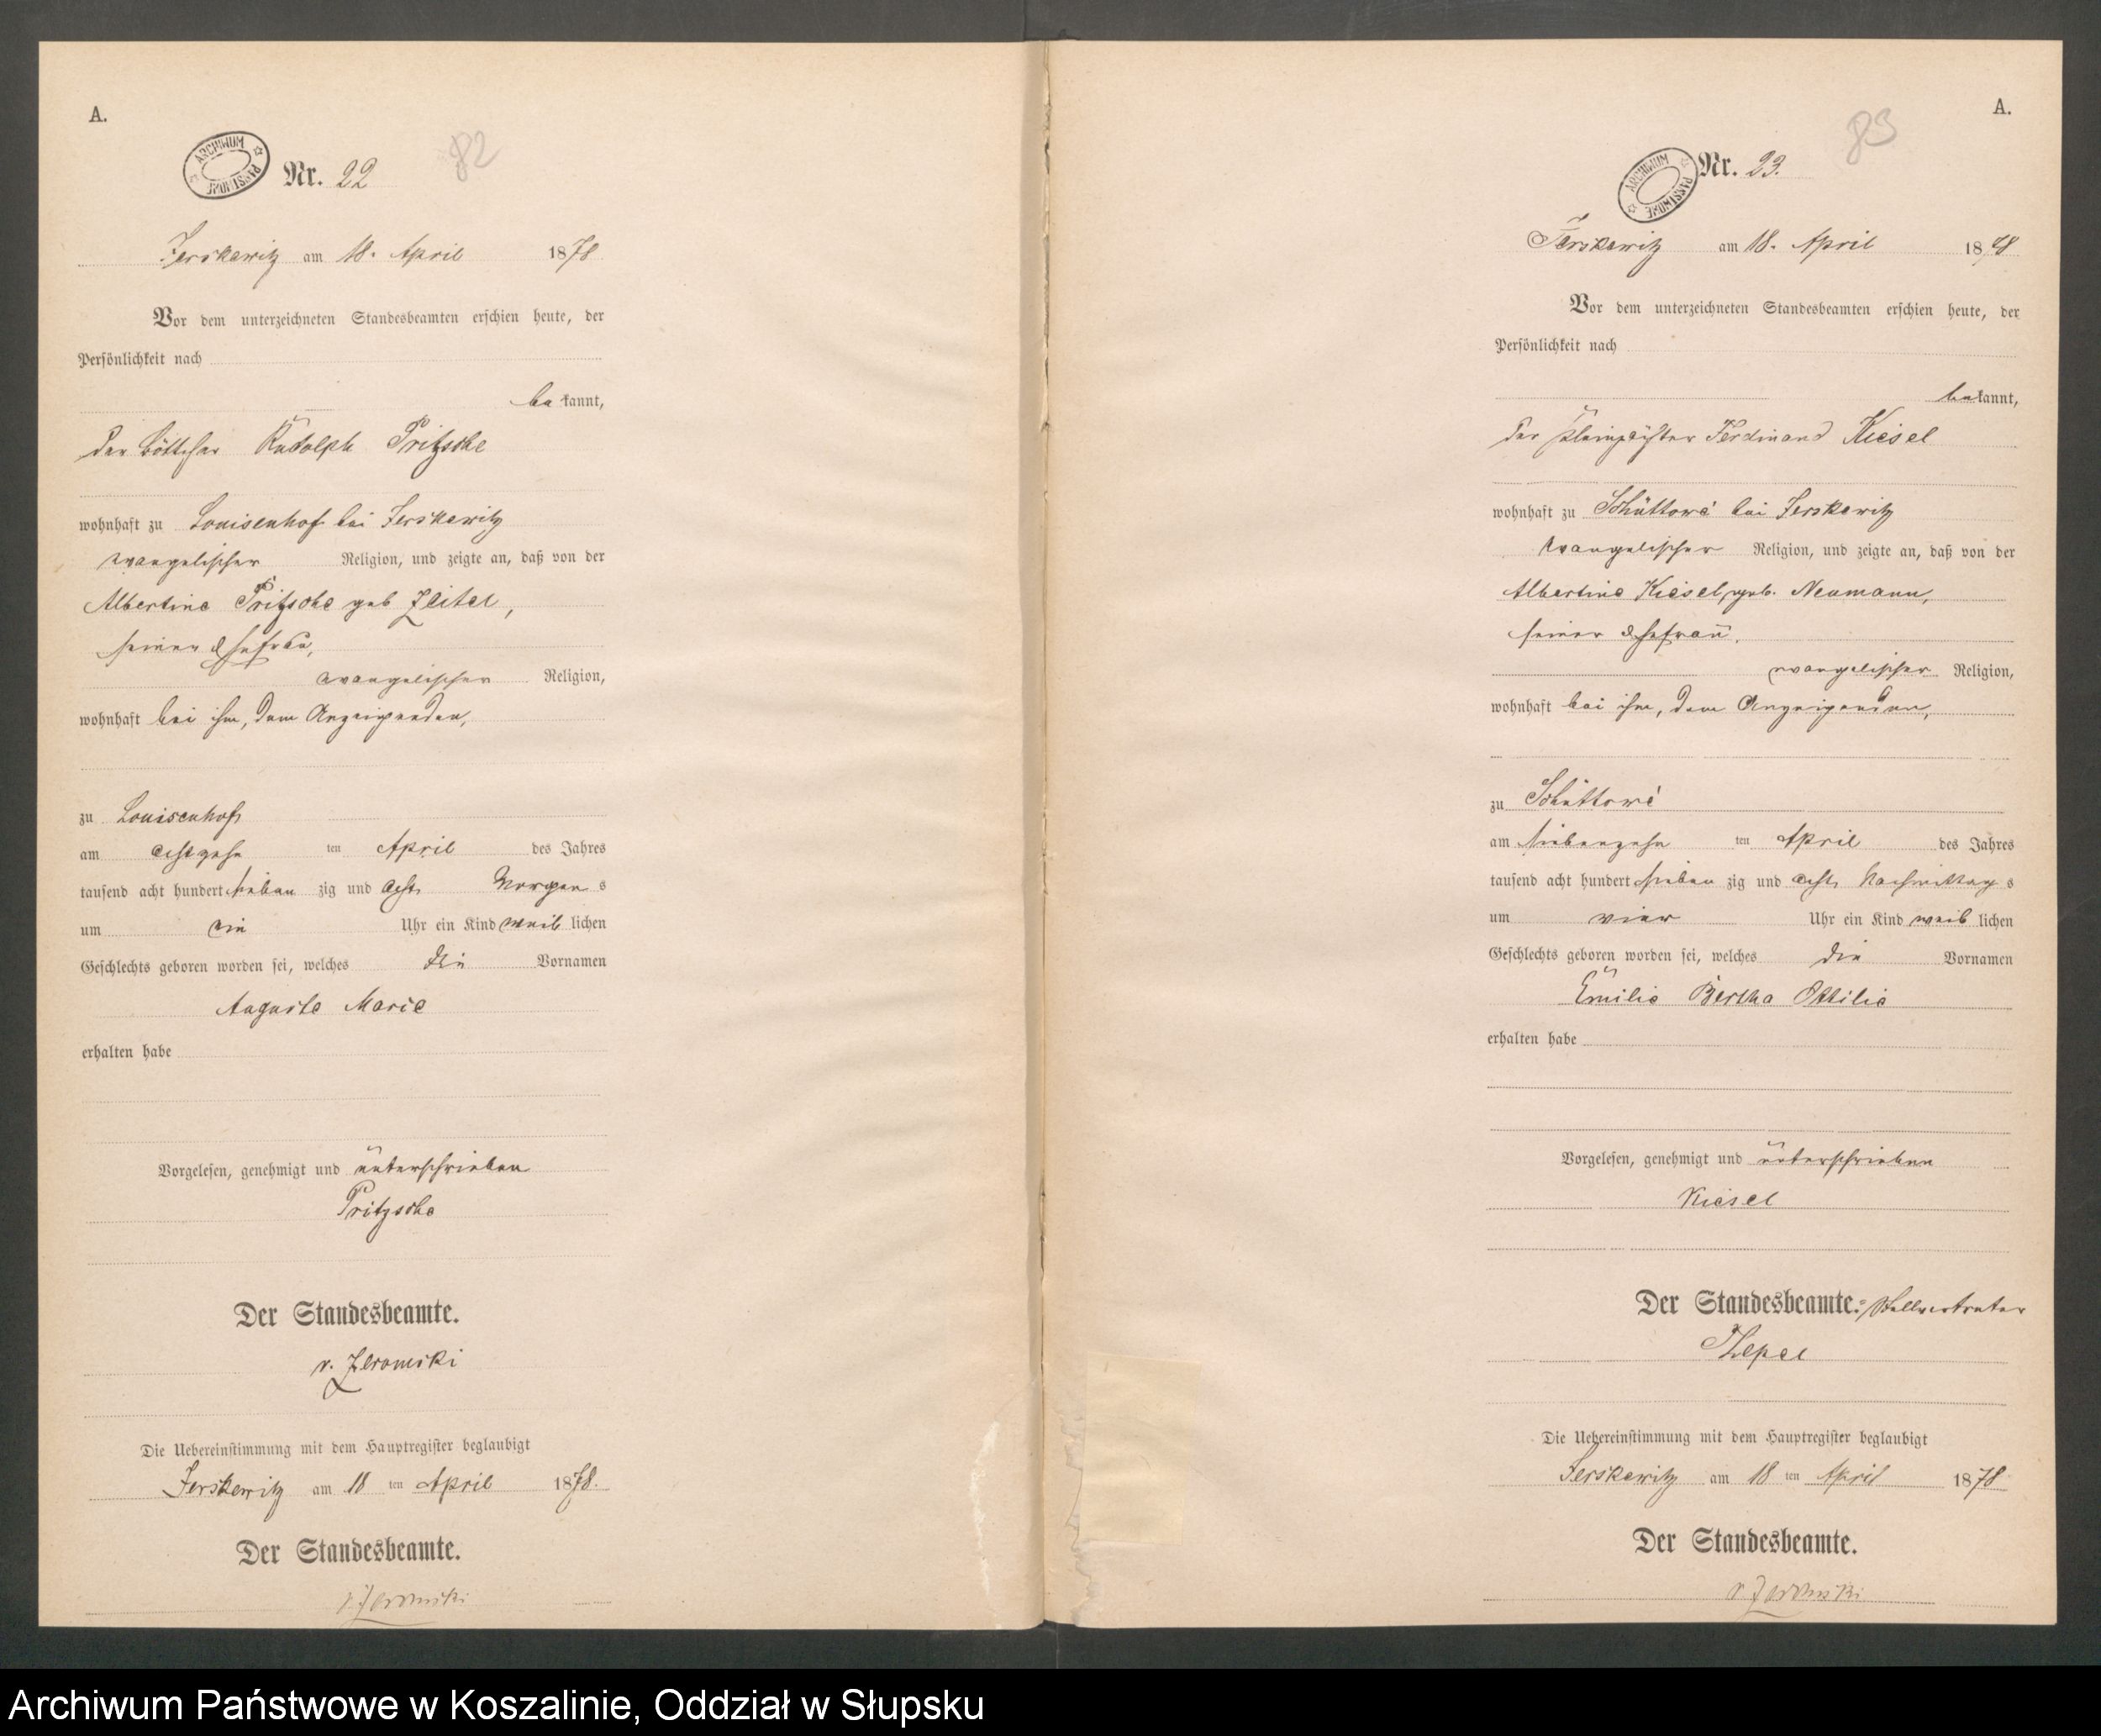 A.
ARCHIWUM PAŃSTWOWE
Nr. 22
82
Jerskewitz am 18. April 1878
Vor dem unterzeichneten Standesbeamten erschien heute, der
Persönlichkeit nach
bekannt,
der Böttcher Rudolph Pritzsche
wohnhaft zu Louisenhof bei Jerskewitz
evangelischer Religion, und zeigte an, daß von der
Albertine Pritzsche geb Zeitel,
seiner Ehefrau,
evangelischer Religion,
wohnhaft bei ihm, dem Anzeigenden,
zu Louisenhof
am achtzehn ten April des Jahres
tausend acht hundert sieben zig und acht Morgens
um ein Uhr ein Kind weiblichen
Geschlechts geboren worden sei, welches die Vornamen
Auguste Marie
erhalten habe
Vorgelesen, genehmigt und unterschrieben
Pritzsche
Der Standesbeamte.
v. Zeromski
Die Uebereinstimmung mit dem Hauptregister beglaubigt
Jerskewitz am 18 ten April 1878.
Der Standesbeamte.
v Zeromski
A.
ARCHIWUM PAŃSTWOWE
Nr. 23.
83
Jerskewitz am 18. April 1878
Vor dem unterzeichneten Standesbeamten erschien heute, der
Persönlichkeit nach
bekannt,
der Ferdinand Kiesel
wohnhaft zu Schüttow bei Jerskewitz
evangelischer Religion, und zeigte an, daß von der
Albertine Kiesel, geb. Neumann,
seiner Ehefrau,
evangelischer Religion,
wohnhaft bei ihm, dem Anzeigenden,
zu Schüttow
am siebenzehn ten April des Jahres
tausend acht hundert sieben zig und acht Nachmittags
um vier Uhr ein Kind weiblichen
Geschlechts geboren worden sei, welches die Vornamen
Emilie Bertha Ottilie
erhalten habe
Vorgelesen, genehmigt und unterschrieben
Kiesel
Der Standesbeamte. Stellvertreter
Die Uebereinstimmung mit dem Hauptregister beglaubigt
Jerskewitz am 18 ten April 1878
Der Standesbeamte.
v Zeromski
Archiwum Państwowe w Koszalinie, Oddział w Słupsku